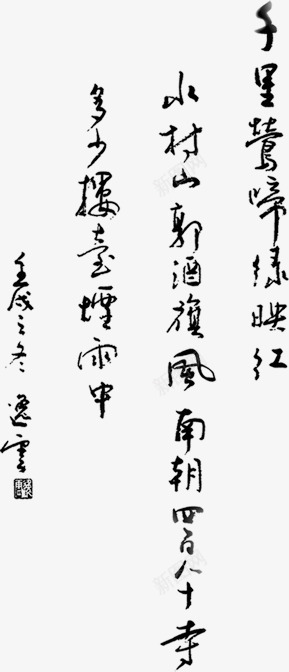 千里鶯啼綠映紅
水村山郭酒旗風南朝四百八十寺
多少樓臺煙雨中
壬戌之冬